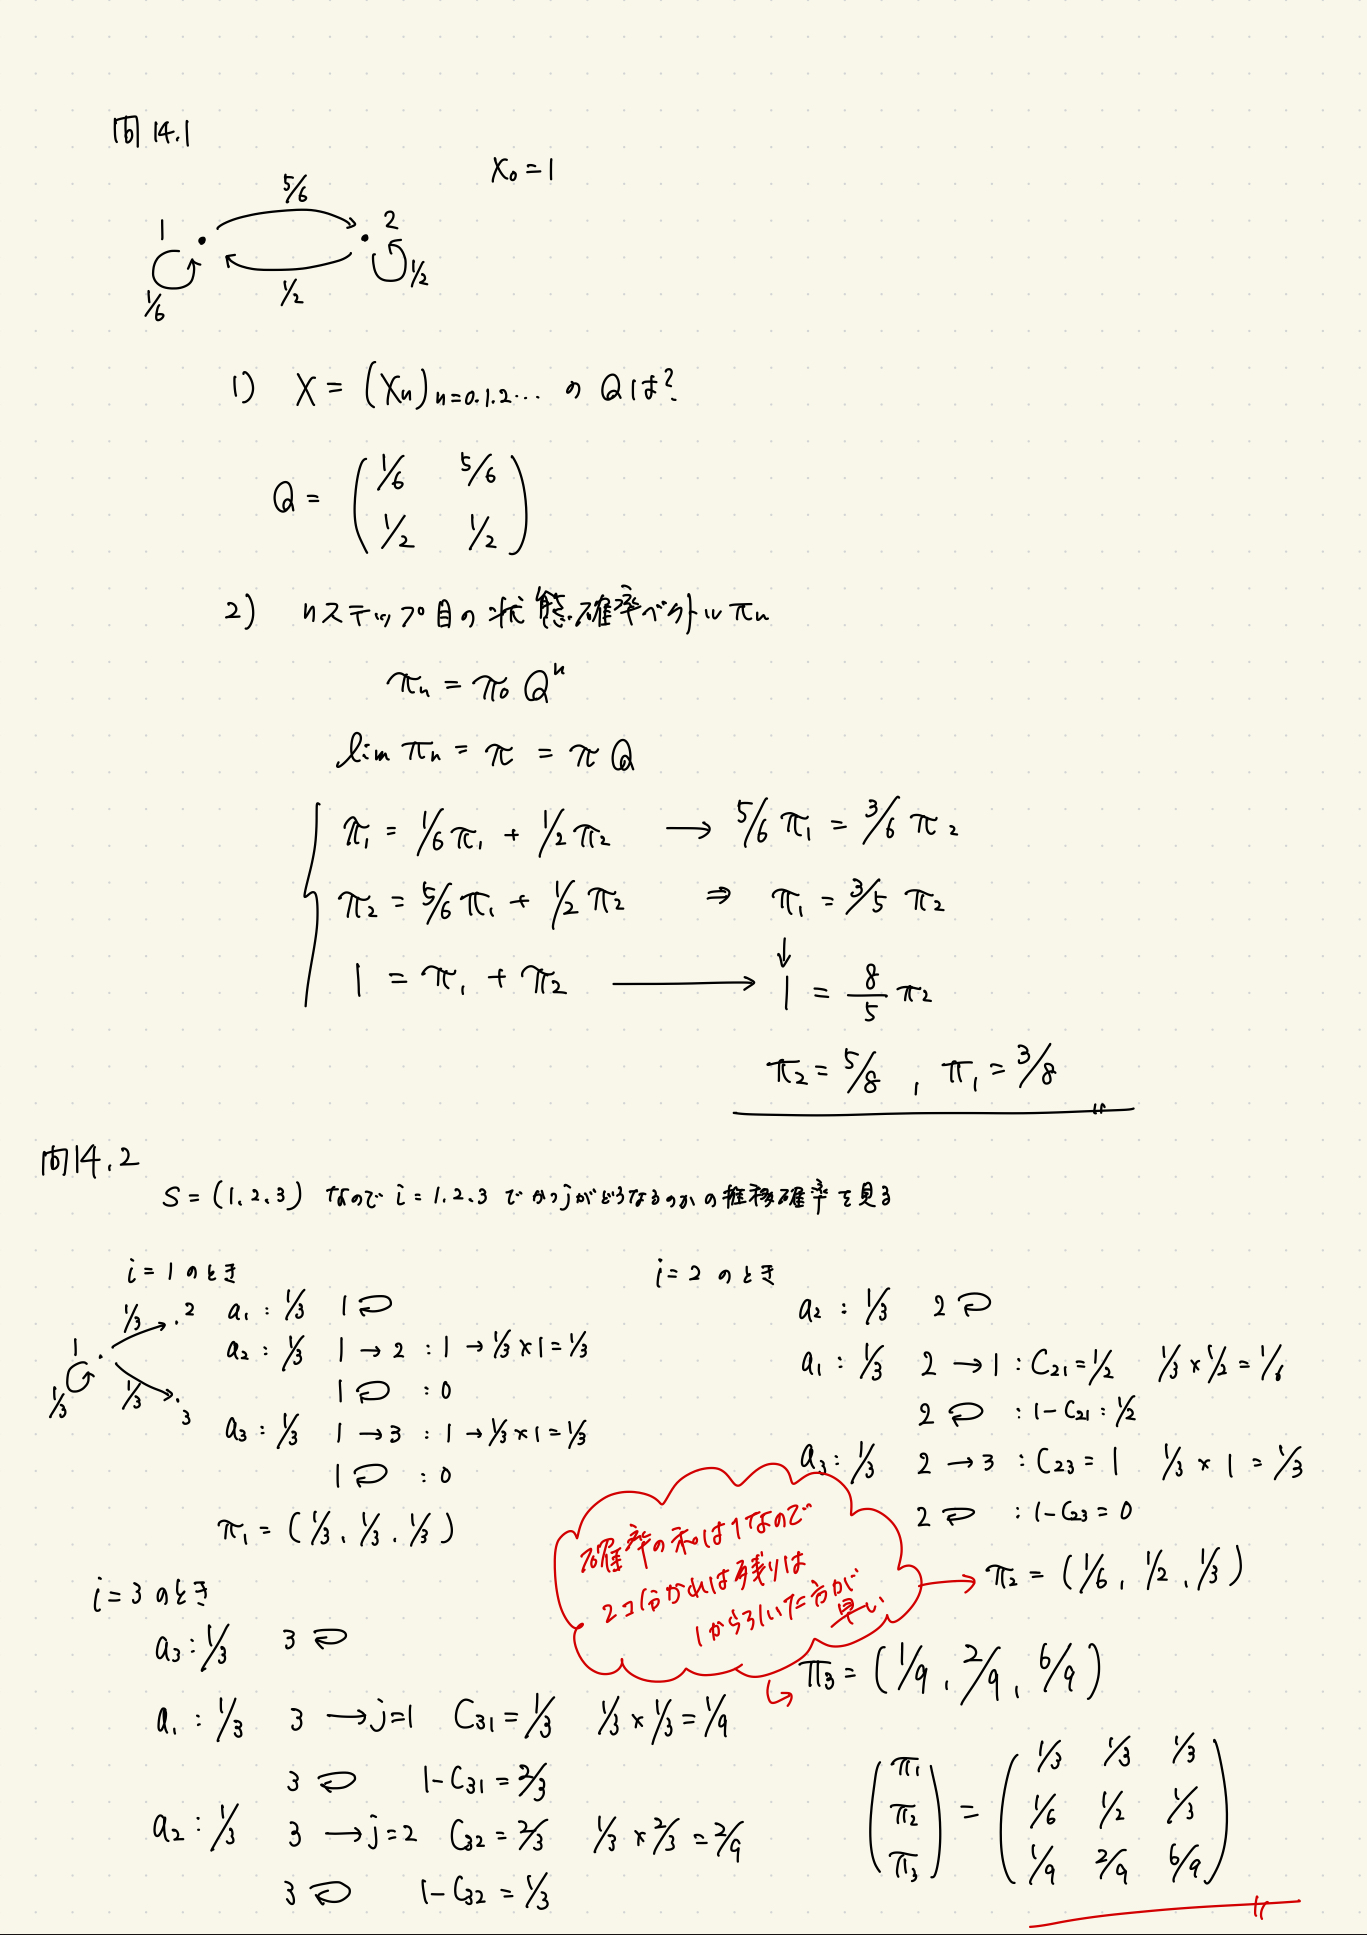 問14.1
X₀ = 1
5/6
1
2
1/6
1/2
1/2
1) X = (Xn) n=0.1.2… の Qは?
Q = ( 1/6 5/6
1/2 1/2 )
2) nステップ目の状態確率ベクトル πn
πn = π₀ Qⁿ
lim πn = π = π Q
π₁ = 1/6 π₁ + 1/2 π₂ → 5/6 π₁ = 3/6 π₂
π₂ = 5/6 π₁ + 1/2 π₂ ⇒ π₁ = 3/5 π₂
↓
1 = π₁ + π₂ → 1 = 8/5 π₂
π₂ = 5/8 , π₁ = 3/8
問14.2
S = (1.2.3) なので i = 1.2.3 でかつjがどうなるのかの推移確率を見る
i = 1 のとき
1/3 .2
1
1/3
1/3
3
a₁ : 1/3 1
a₂ : 1/3 1 → 2 : 1 → 1/3 × 1 = 1/3
1 : 0
a₃ : 1/3 1 → 3 : 1 → 1/3 × 1 = 1/3
1 : 0
π₁ = (1/3, 1/3, 1/3)
i = 2 のとき
a₂ : 1/3 2
a₁ : 1/3 2 → 1 : C₂₁ = 1/2 1/3 × 1/2 = 1/6
2 : 1 - C₂₁ : 1/2
a₃ : 1/3 2 → 3 : C₂₃ = 1 1/3 × 1 = 1/3
2 : 1 - C₂₃ = 0
確率の和は1なので
2コ分かれば残りは
1から引いた方が
早い
→ π₂ = (1/6, 1/2, 1/3)
i = 3 のとき
a₃ : 1/3 3
a₁ : 1/3 3 → j=1 C₃₁ = 1/3 1/3 × 1/3 = 1/9
3 1 - C₃₁ = 2/3
a₂ : 1/3 3 → j=2 C₃₂ = 2/3 1/3 × 2/3 = 2/9
3 1 - C₃₂ = 1/3
π₃ = (1/9, 2/9, 6/9)
( π₁ π₂ π₃ ) = ( 1/3 1/3 1/3
1/6 1/2 1/3
1/9 2/9 6/9 )